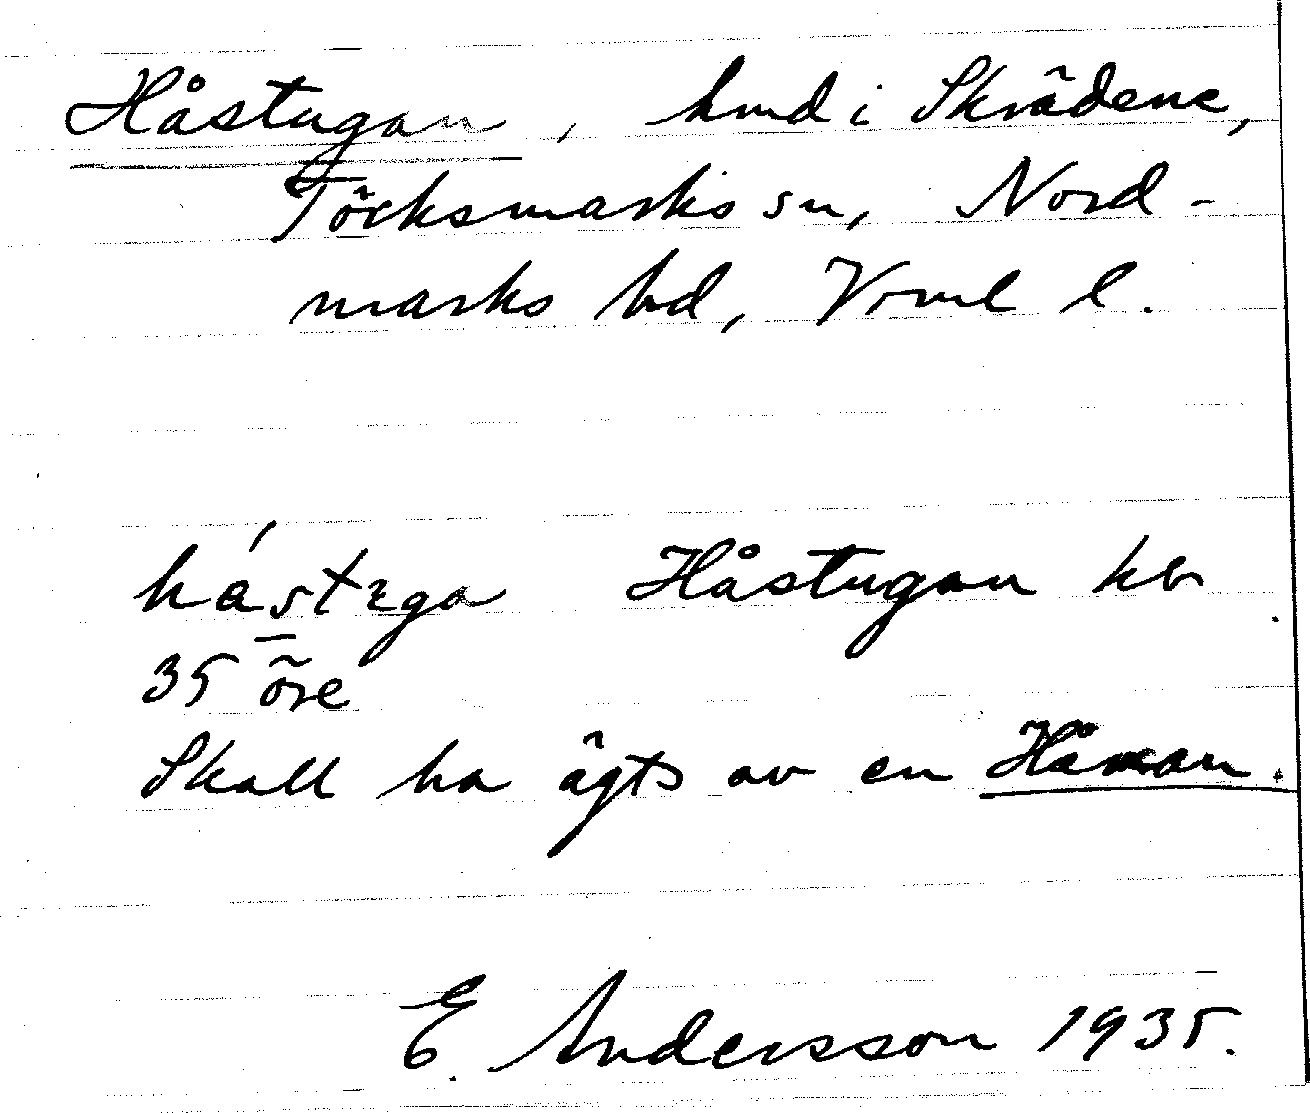 Håstugan, hmd i Skrädene,
Töcksmarks sn, Nord-
marks hd, Vrml l.
hástɛga Håstugan kb
35 öre
Skall ha ägts av en Håman.
E. Andersson 1935.